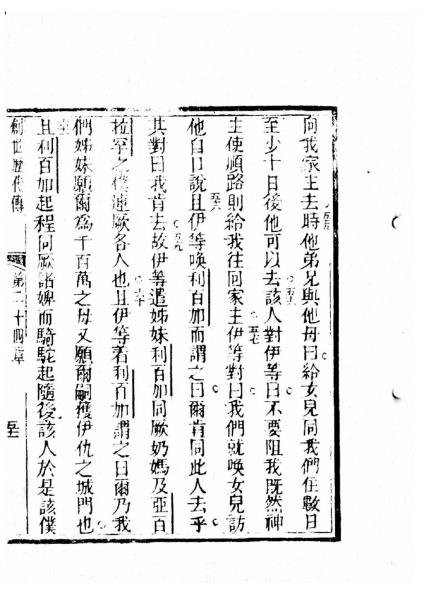 向我家主去時他弟兄與他母曰給女兒同我們住數日
至少十日後他可以去該人對伊等曰不要阻我既然神
主使順路則給我往回家主伊等對曰我們就喚女兒訪
他自口說且伊等喚利百加而謂之曰爾肯同此人去乎
其對曰我肯去故伊等遣姊妹利百加同厥奶媽及亞百
拉罕之僕連厥各人也且伊等着利百加謂之曰爾乃我
們姊妹願爾為千百萬之母又願爾嗣獲伊仇之城門也
且利百加起程同厥諸婢而騎駝起隨後該人於是該僕
創世歷代傳 第二十四章